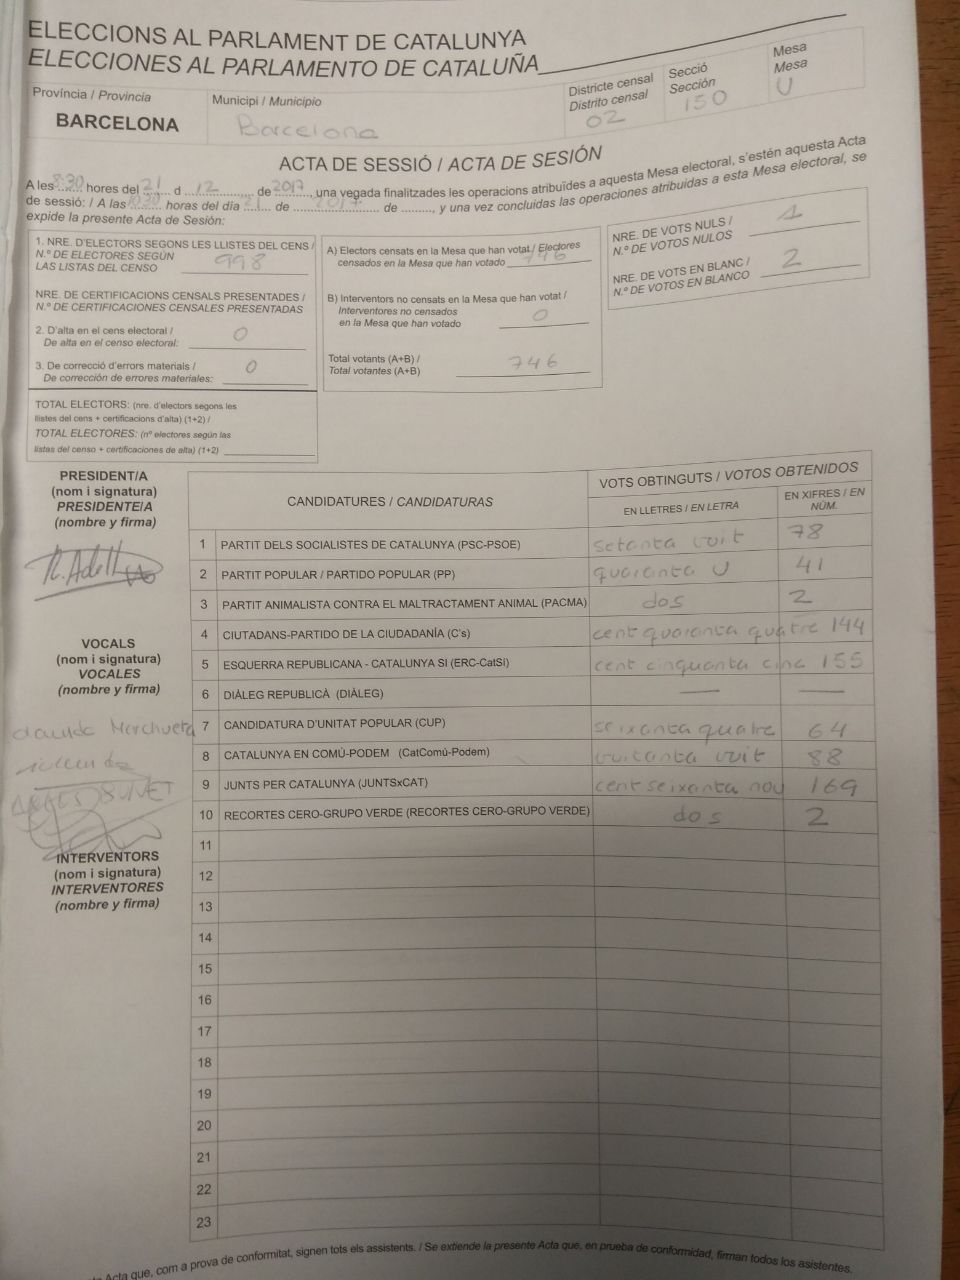 ELECCIONS AL PARLAMENT DE CATALUNYA
ELECCIONES AL PARLAMENTO DE CATALUÑA
Província / Provincia
BARCELONA
Municipi / Municipio
Barcelona
Districte censal
Distrito censal
02
Secció
Sección
150
Mesa
Mesa
U
ACTA DE SESSIÓ / ACTA DE SESIÓN
A les 8:30 hores del 21 d 12 de 2017, una vegada finalitzades les operacions atribuïdes a aquesta Mesa electoral, s'estén aquesta Acta
de sessió: / A las horas del día de 2017 de, y una vez concluidas las operaciones atribuidas a esta Mesa electoral, se
expide la presente Acta de Sesión:
1. NRE. D'ELECTORS SEGONS LES LLISTES DEL CENS /
N.º DE ELECTORES SEGÚN
LAS LISTAS DEL CENSO 998
NRE. DE CERTIFICACIONS CENSALS PRESENTADES /
N.º DE CERTIFICACIONES CENSALES PRESENTADAS
2. D'alta en el cens electoral /
De alta en el censo electoral: 0
3. De correcció d'errors materials /
De corrección de errores materiales: 0
TOTAL ELECTORS: (nre. d'electors segons les
llistes del cens + certificacions d'alta) (1+2) /
TOTAL ELECTORES: (nº electores según las
listas del censo + certificaciones de alta) (1+2)
A) Electors censats en la Mesa que han votat / Electores
censados en la Mesa que han votado 746
B) Interventors no censats en la Mesa que han votat /
Interventores no censados
en la Mesa que han votado 0
Total votants (A+B) /
Total votantes (A+B) 746
NRE. DE VOTS NULS /
N.º DE VOTOS NULOS 1
NRE. DE VOTS EN BLANC /
N.º DE VOTOS EN BLANCO 2
PRESIDENT/A
(nom i signatura)
PRESIDENTE/A
(nombre y firma)
VOCALS
(nom i signatura)
VOCALES
(nombre y firma)
INTERVENTORS
(nom i signatura)
INTERVENTORES
(nombre y firma)
CANDIDATURES / CANDIDATURAS
VOTS OBTINGUTS / VOTOS OBTENIDOS
EN LLETRES / EN LETRA
EN XIFRES / EN NÚM.
1 PARTIT DELS SOCIALISTES DE CATALUNYA (PSC-PSOE) setanta vuit 78
2 PARTIT POPULAR / PARTIDO POPULAR (PP) quaranta U 41
3 PARTIT ANIMALISTA CONTRA EL MALTRACTAMENT ANIMAL (PACMA) dos 2
4 CIUTADANS-PARTIDO DE LA CIUDADANÍA (C's) cent quaranta quatre 144
5 ESQUERRA REPUBLICANA - CATALUNYA SI (ERC-CatSí) cent cinquanta cinc 155
6 DIÀLEG REPUBLICÀ (DIÀLEG) — —
7 CANDIDATURA D'UNITAT POPULAR (CUP) seixanta quatre 64
8 CATALUNYA EN COMÚ-PODEM (CatComú-Podem) vuitanta vuit 88
9 JUNTS PER CATALUNYA (JUNTSxCAT) cent seixanta nou 169
10 RECORTES CERO-GRUPO VERDE (RECORTES CERO-GRUPO VERDE) dos 2
11
12
13
14
15
16
17
18
19
20
21
22
23
Acta que, com a prova de conformitat, signen tots els assistents. / Se extiende la presente Acta que, en prueba de conformidad, firman todos los asistentes.